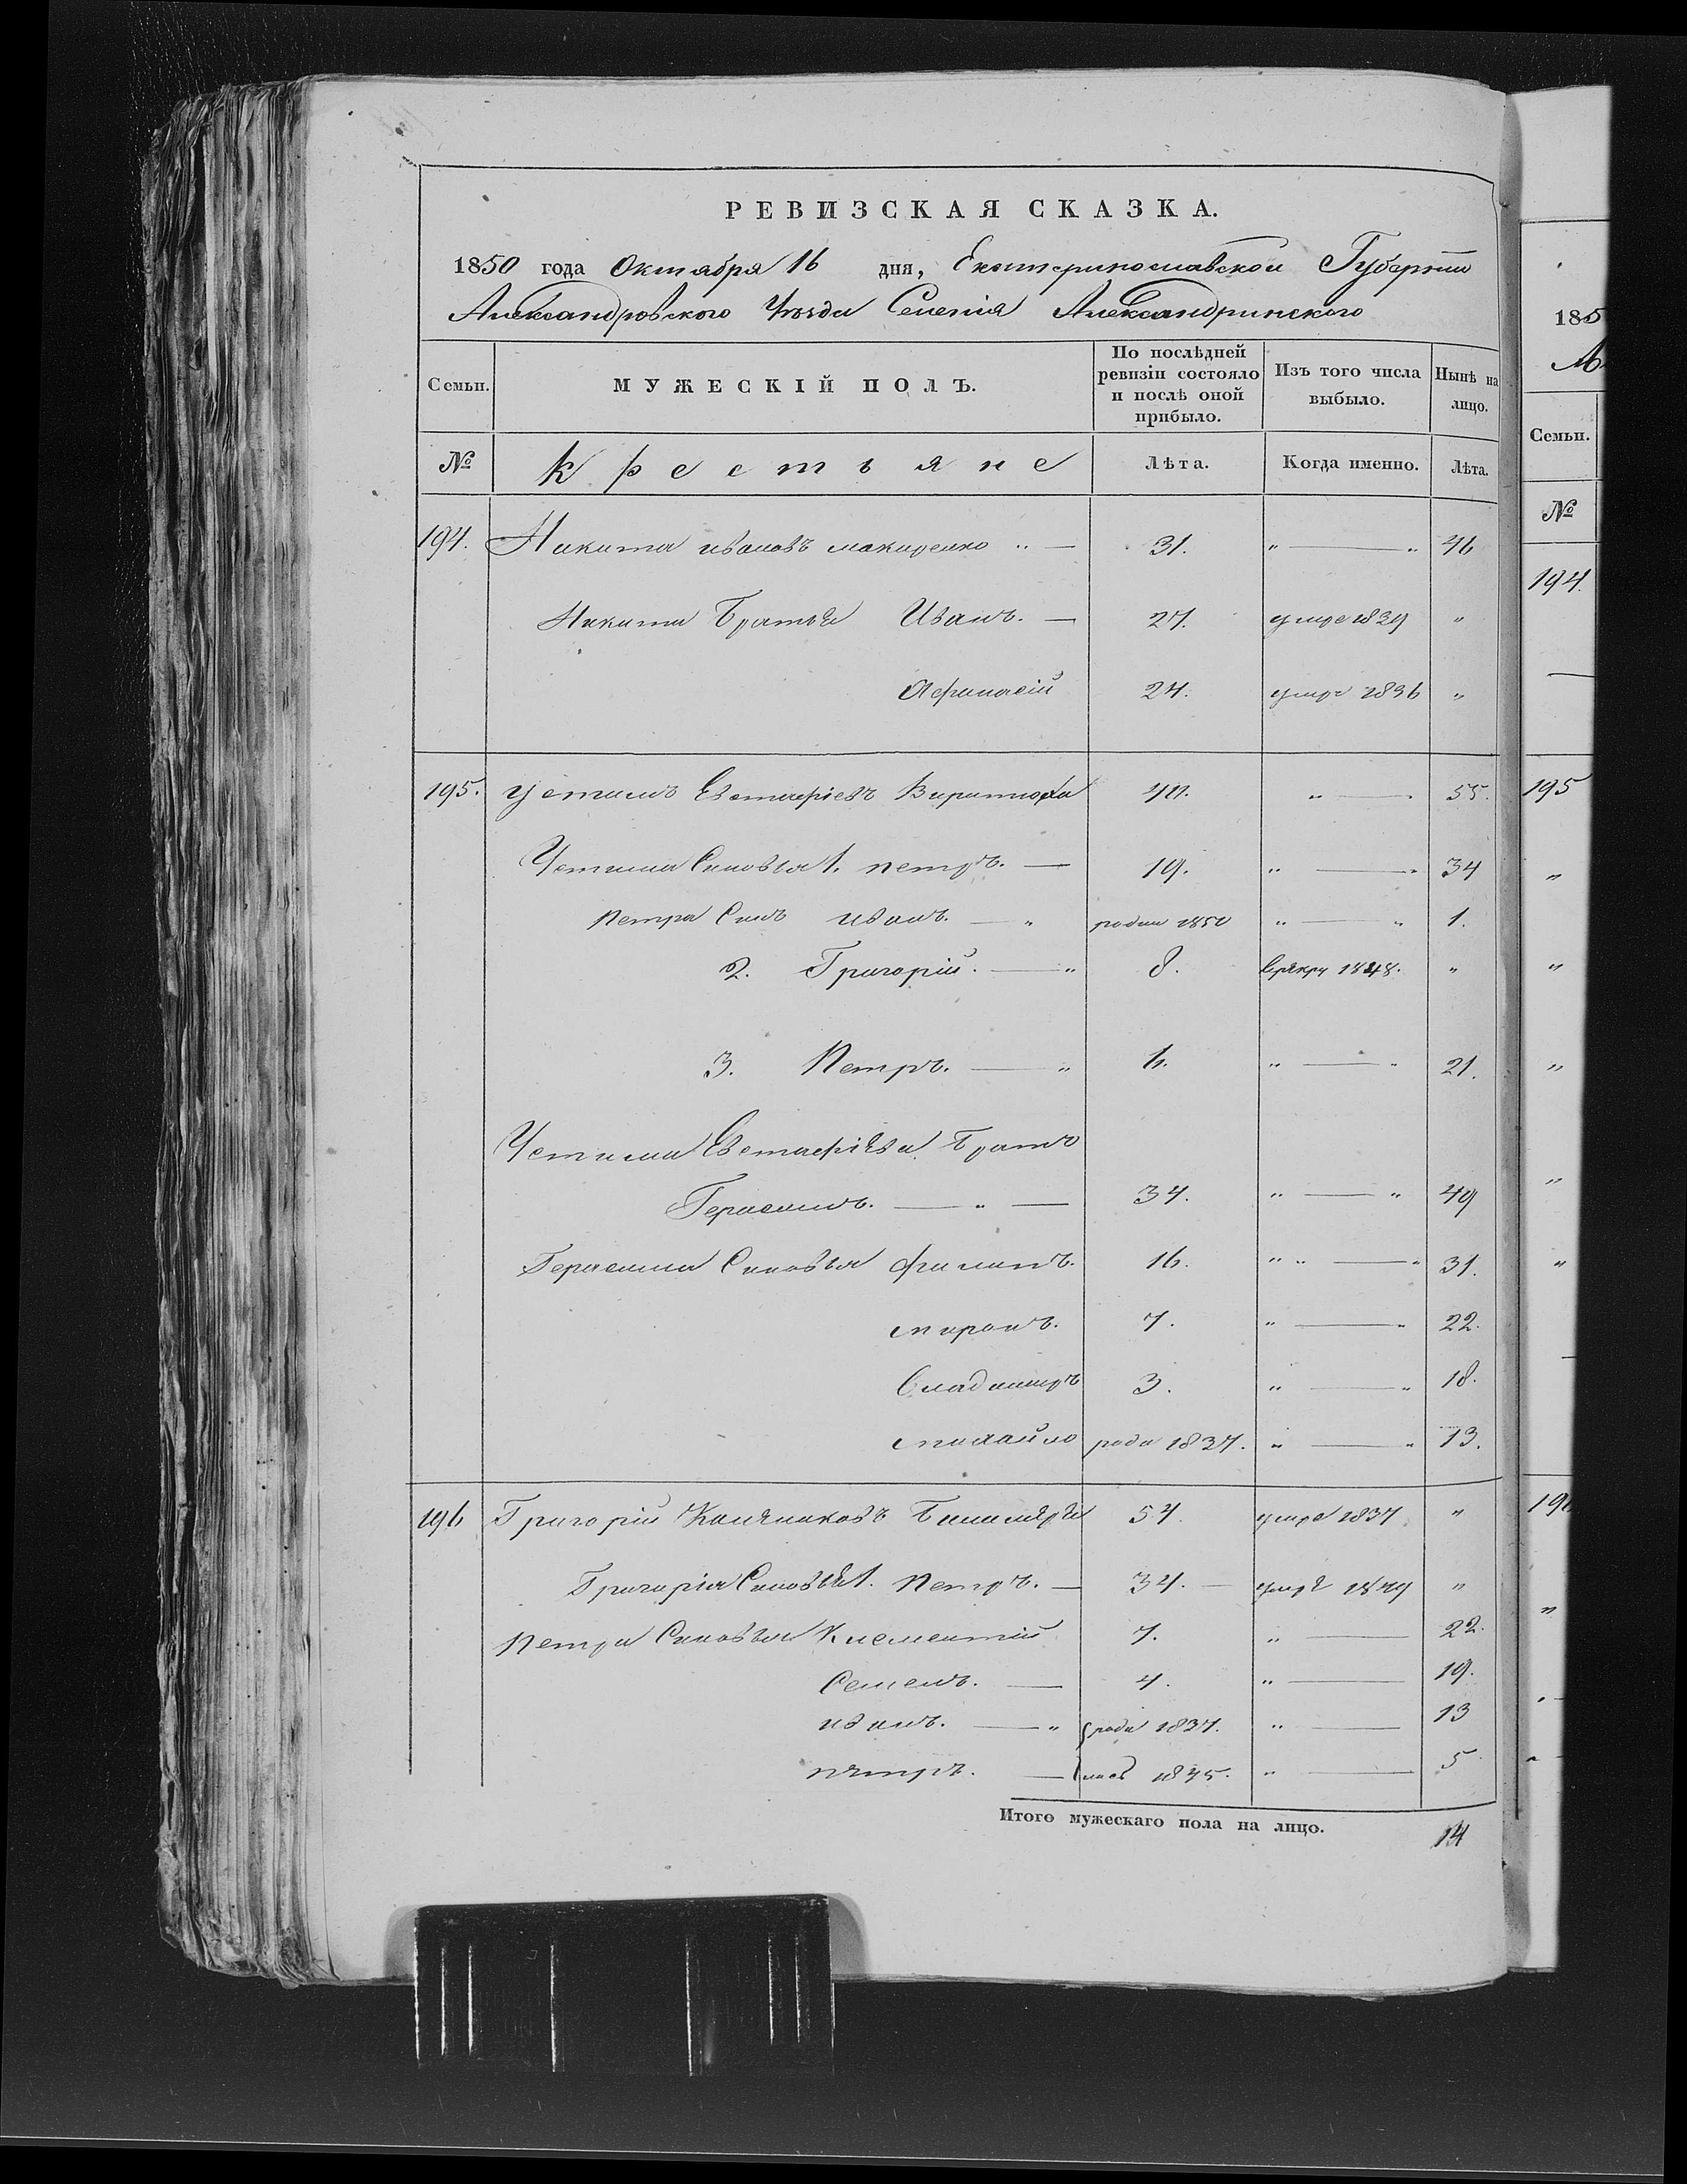 РЕВИЗСКАЯ СКАЗКА.
1850 года Октября 16 дня, Екатеринославской Губернии
Александровского Уѣзда Селенія Александринского
Семьи. МУЖЕСКІЙ ПОЛЪ. По послѣдней ревизіи состояло и послѣ оной прибыло. Изъ того числа выбыло. Нынѣ на лицо.
№ Крестьяне Лѣта. Когда именно. Лѣта.
194. Никита ивановъ макиренко „ — 31. „ — „ 46
Никиты Братья Иванъ. — 27. умре 1839 „
Афанасій 24. умре 1836 „
195. устимъ Евстафіевъ 40. „ — 55.
Устима Сыновья 1. петръ. — 19. „ — 34
Петра Сынъ иванъ. — „ родил 1850 „ — „ 1.
2. Григорій. — „ 8. 1848. „
3. Петръ. — „ 6. „ — „ 21.
Устима Евстафіева Братъ
Герасимъ. — „ — 34. „ — „ 49
Герасима Сыновья филипъ. 16. „ „ — „ 31.
миронъ. 7. „ — „ 22.
Владимиръ 3. „ — „ 18.
михайло роди 1837. „ — „ 13.
196 Григорій 54. умре 1837 „
Григорія Сыновья 1. Петръ. — 34. — умре 1849 „
Петра Сыновья Климентій 7. „ — 22.
Семенъ. — 4. „ — 19.
иванъ. — „ роди 1837. „ — 13
пѣтръ. — лись 1845. „ — 5
Итого мужескаго пола на лицо. 14
185
Семьи.
№
194.
195